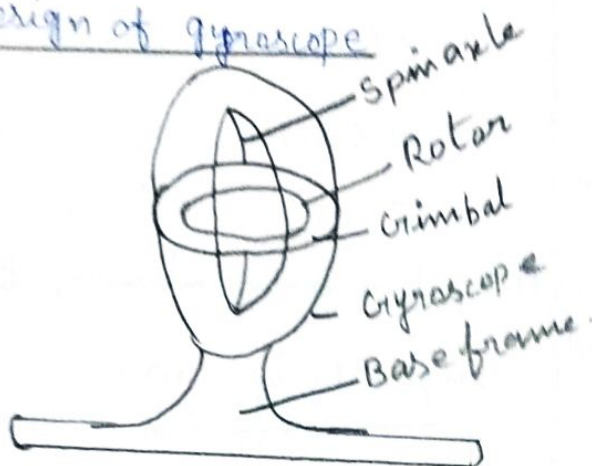 esign of gyroscope
Spin axle
Rotor
Gimbal
Gyroscope
Base frame.